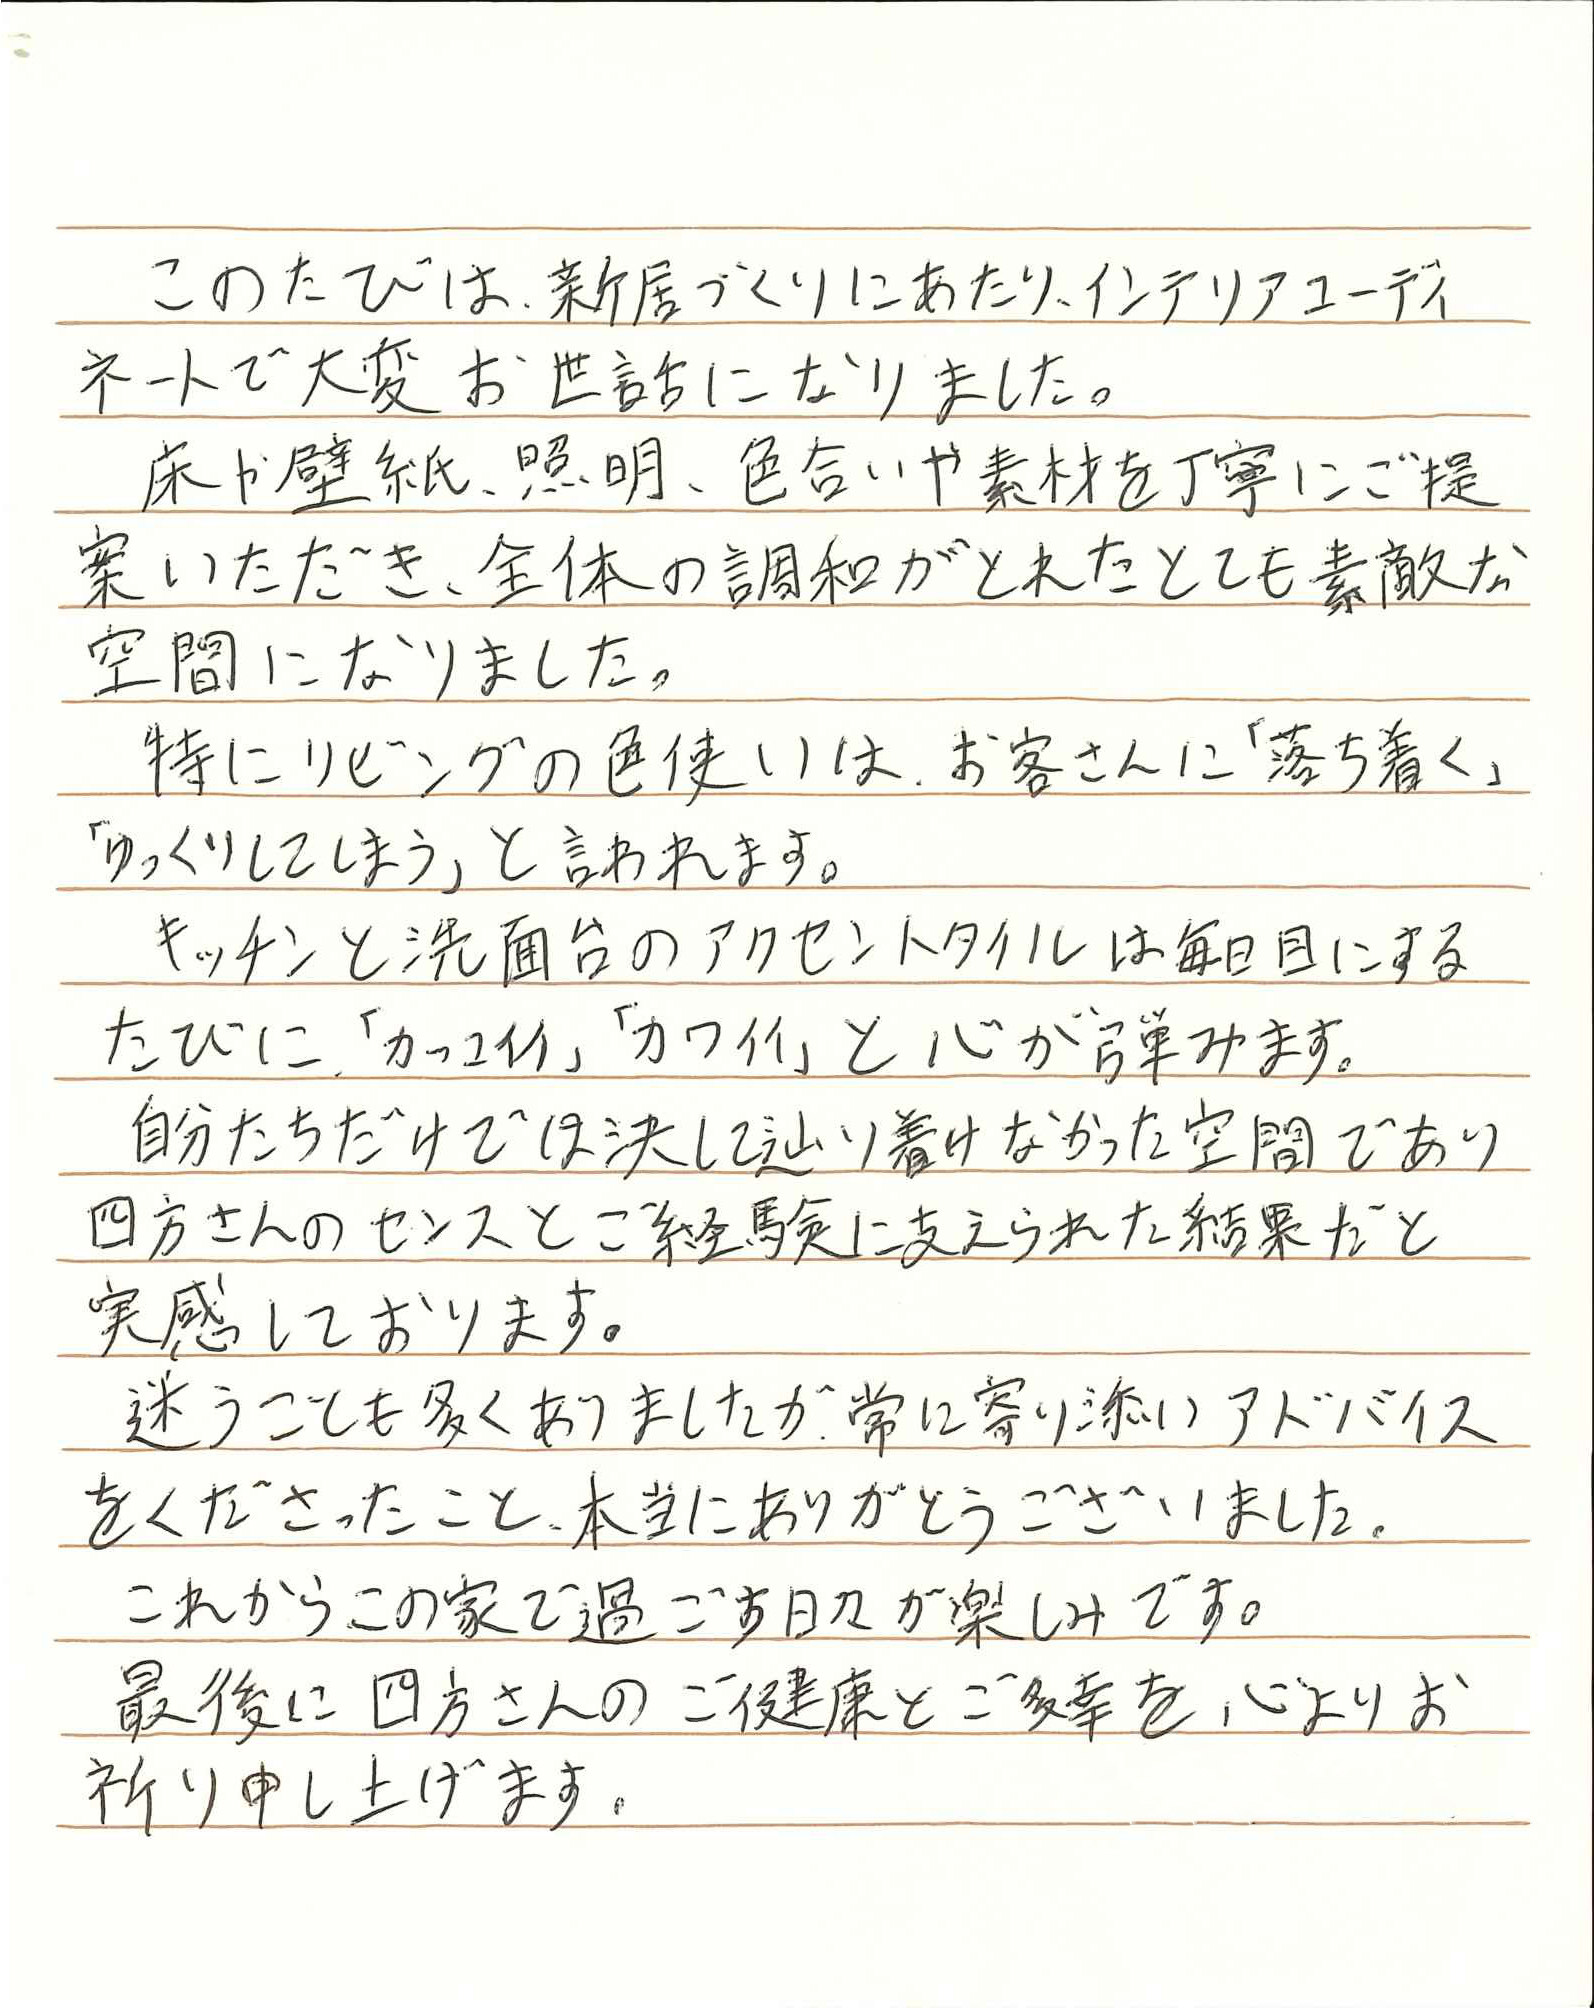 このたびは、新居づくりにあたり、インテリアコーディ
ネートで大変お世話になりました。
床や壁紙、照明、色合いや素材を丁寧にご提
案いただき、全体の調和がとれたとても素敵な
空間になりました。
特にリビングの色使いは、お客さんに「落ち着く」
「ゆっくりしてしまう」と言われます。
キッチンと洗面台のアクセントタイルは毎日目にする
たびに、「カッコイイ」「カワイイ」と心が弾みます。
自分たちだけでは決して辿り着けなかった空間であり
四方さんのセンスとご経験に支えられた結果だと
実感しております。
迷うことも多くありましたが、常に寄り添いアドバイス
をくださったこと、本当にありがとうございました。
これからこの家で過ごす日々が楽しみです。
最後に四方さんのご健康とご多幸を心よりお
祈り申し上げます。